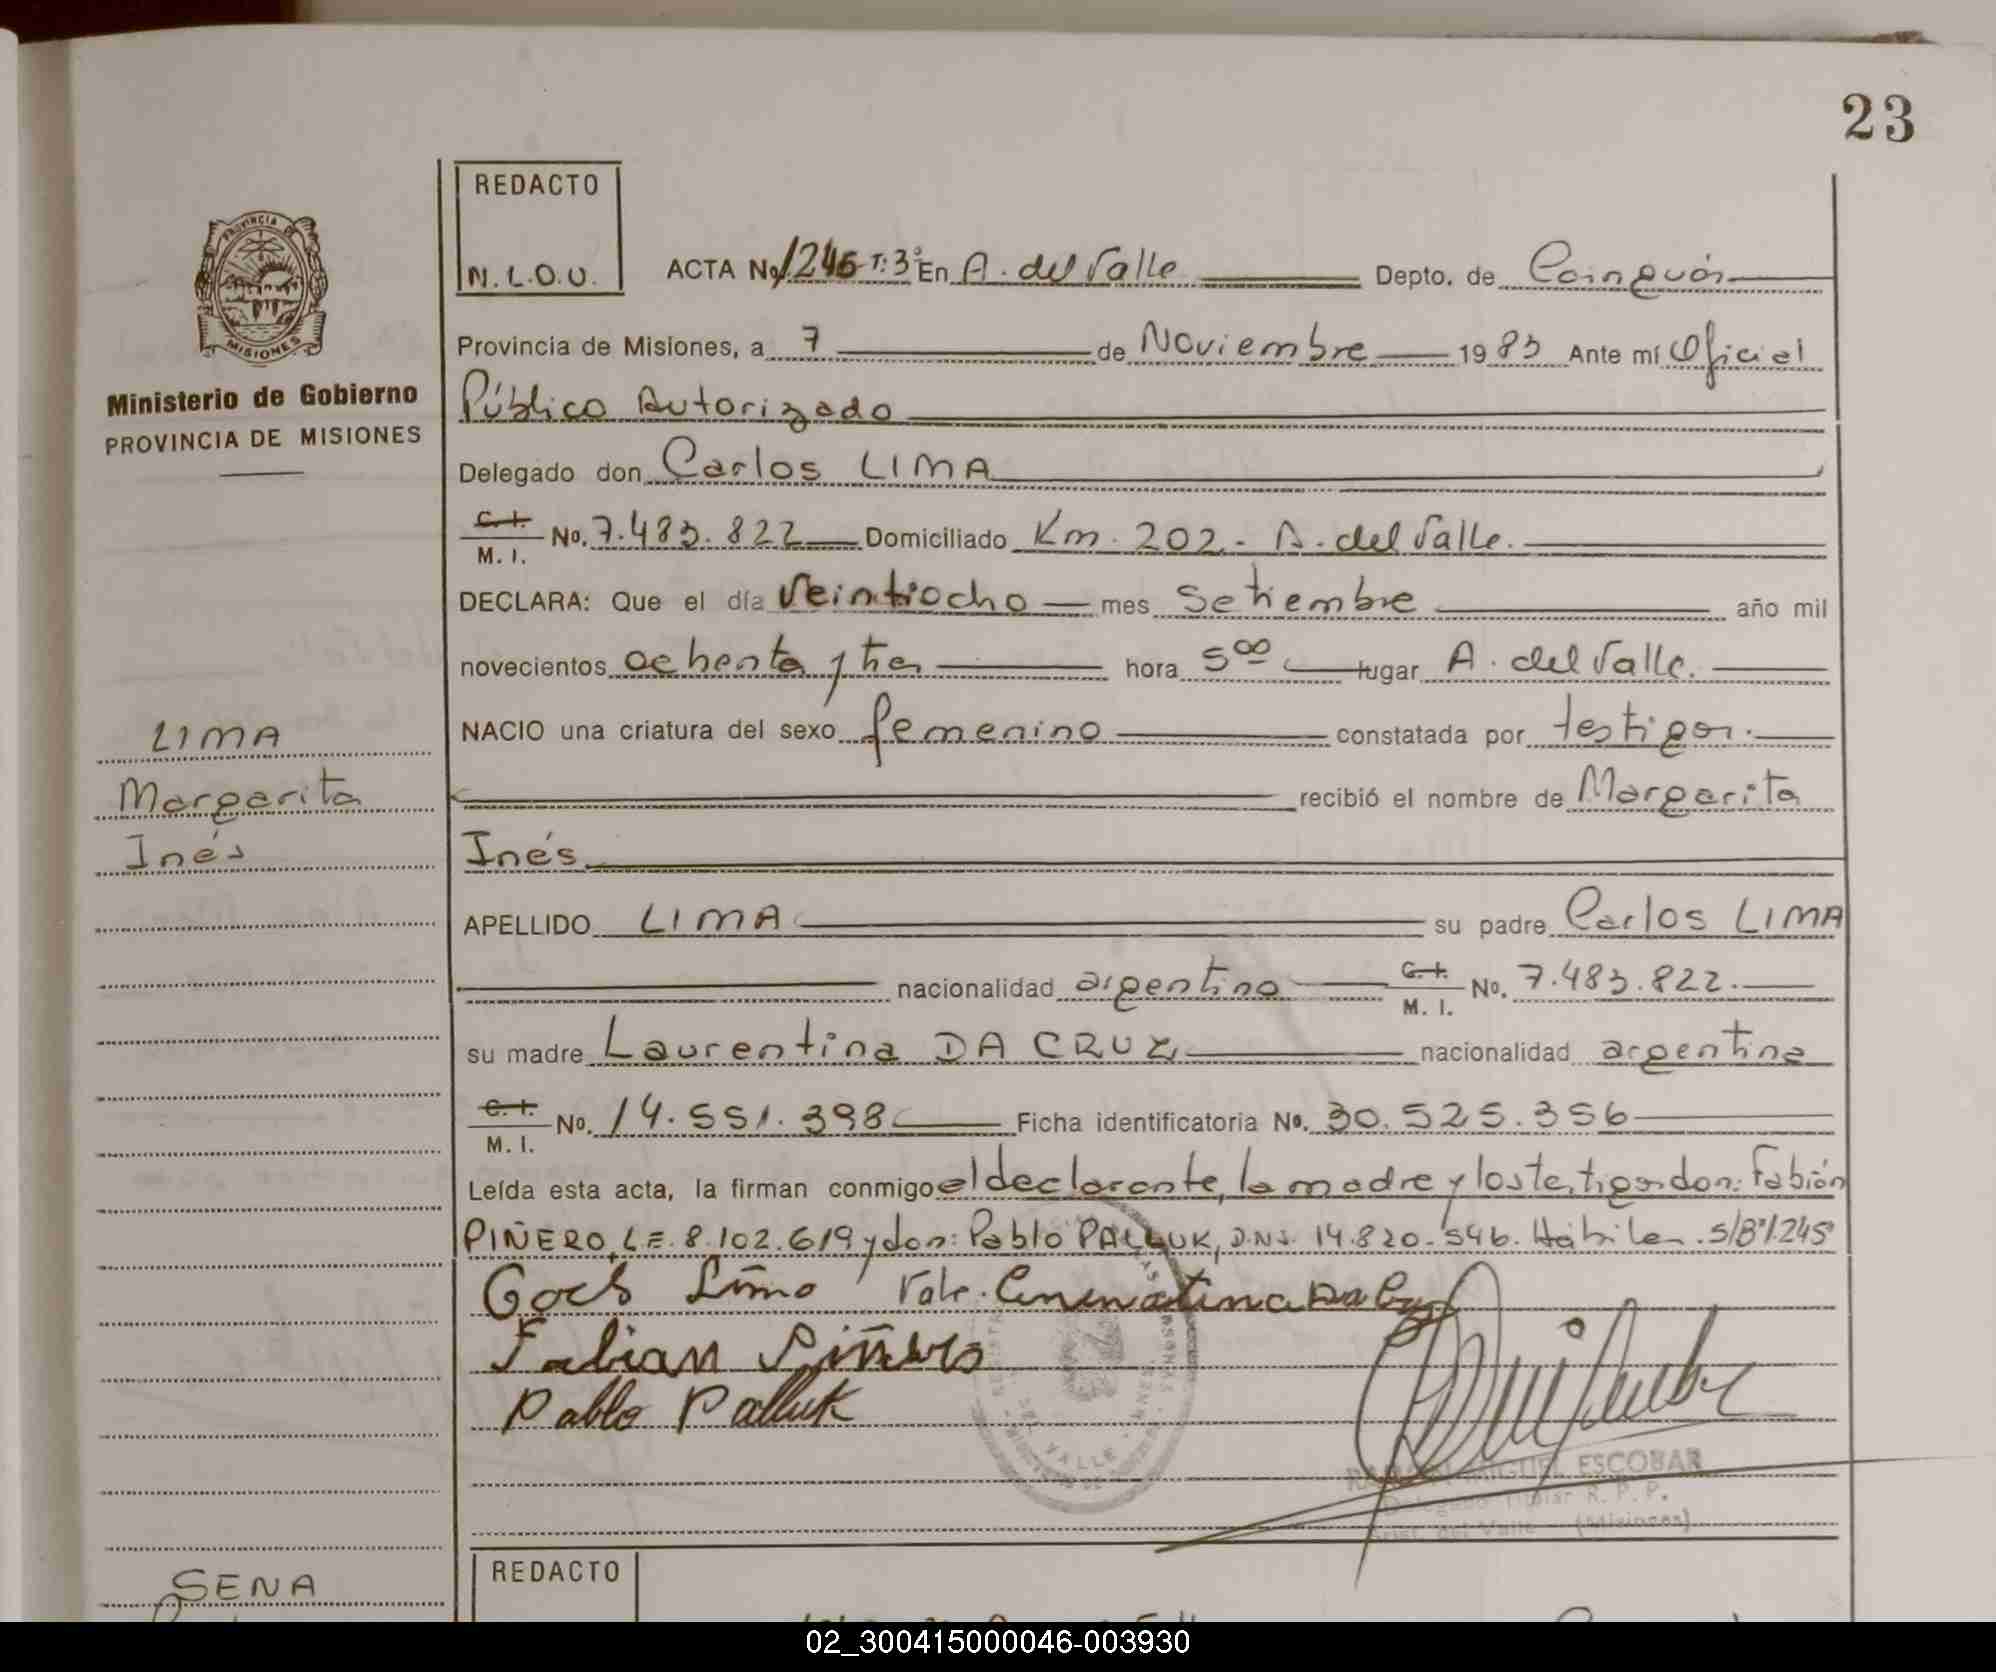 23
REDACTO
N.L.O.U.
ACTA No. 1245 T: 3º En A. del Valle Depto. de Cainguás
PROVINCIA DE
MISIONES
Provincia de Misiones, a 7 de Noviembre 1983 Ante mí Oficial
Ministerio de Gobierno
PROVINCIA DE MISIONES
Público Autorizado
Delegado don Carlos LIMA
C. I.
M. I. No. 7.483.822 Domiciliado Km. 202 - A. del Valle.
DECLARA: Que el día Veintiocho mes Setiembre año mil
novecientos ochenta y tres hora 5 00 lugar A. del Valle.
NACIO una criatura del sexo femenino constatada por testigos.
LIMA
Margarita
Inés
recibió el nombre de Margarita
Inés
APELLIDO LIMA su padre Carlos LIMA
nacionalidad argentino C. I.
M. I. No. 7.483.822.
su madre Laurentina DA CRUZ nacionalidad argentina
C. I.
M. I. No. 14.551.398 Ficha identificatoria No. 30.525.356
Leída esta acta, la firman conmigo el declarante, la madre y los testigos don: Fabián
PIÑERO, L.E. 8.102.619 y don: Pablo PALLUK, D.N.I. 14.820.546. Hábiles. S/Bº 1.245
Vale.
Fabian Piñero
Pablo Palluk
VALLE
RAMON MIGUEL ESCOBAR
Delegado Titular R. P. P.
Arist. del Valle - (Misiones)
REDACTO
SENA
02_300415000046-003930